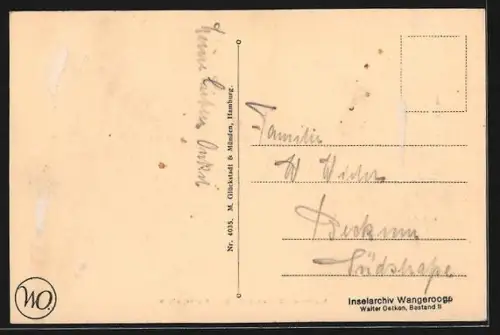 Meine lieben Onkel
Nr. 4035. M. Glückstadt & Münden, Hamburg.
Familie
W
Beckum
Südstraße
Inselarchiv Wangerooge
Walter Oetken, Bastand 8
WO.